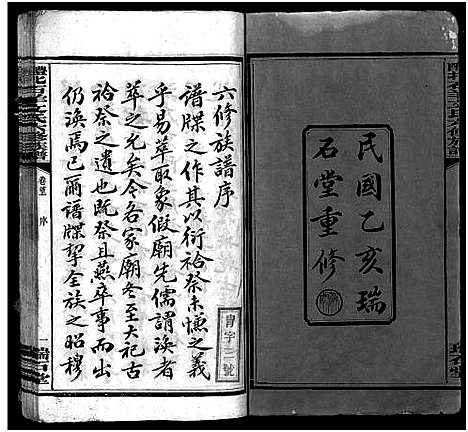 民國乙亥瑞
石堂重修
六修族譜序
譜牒之作其以衍祫祭未慊之義
乎易萃取象假廟先儒謂渙者
萃之尤矣今名家廟冬至大祀古
祫祭之遺也既祭且燕卒事而出
仍渙焉已爾譜牒挈全族之昭穆
卷首
序
一
瑞石堂